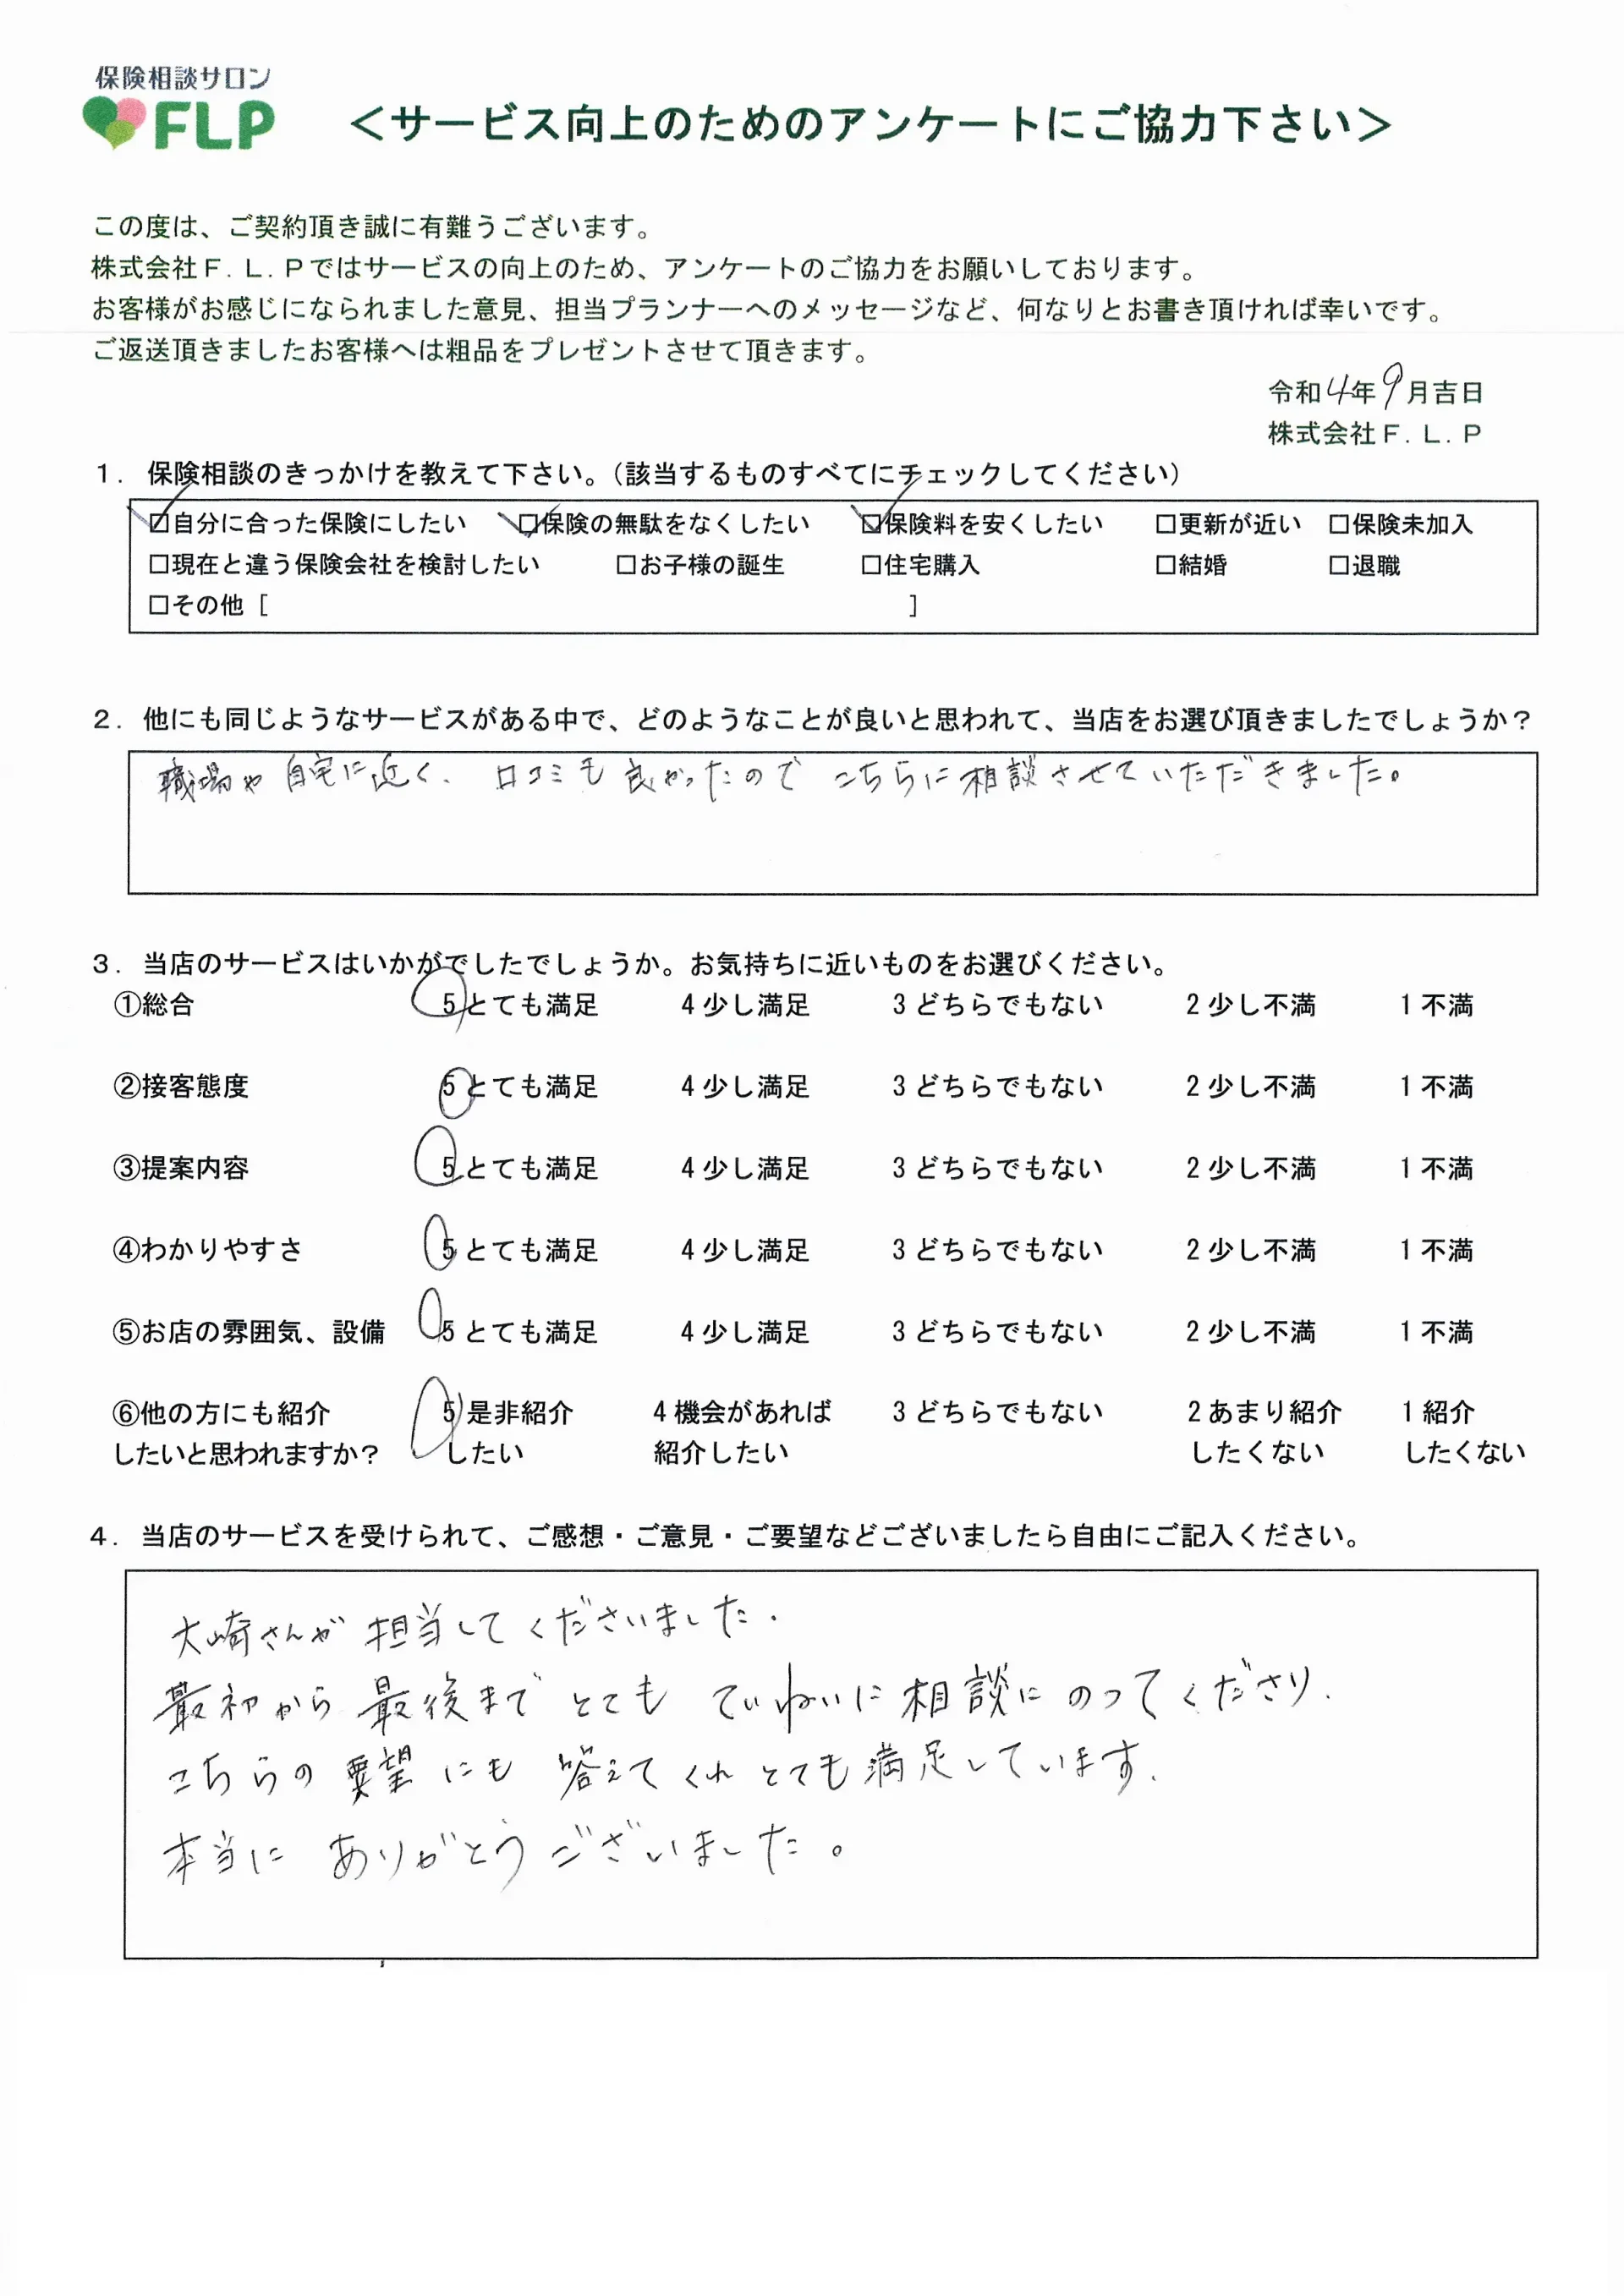 保険相談サロン
FLP
＜サービス向上のためのアンケートにご協力下さい＞
この度は、ご契約頂き誠に有難うございます。
株式会社Ｆ．Ｌ．Ｐではサービスの向上のため、アンケートのご協力をお願いしております。
お客様がお感じになられました意見、担当プランナーへのメッセージなど、何なりとお書き頂ければ幸いです。
ご返送頂きましたお客様へは粗品をプレゼントさせて頂きます。
令和4年9月吉日
株式会社Ｆ．Ｌ．Ｐ
１．保険相談のきっかけを教えて下さい。（該当するものすべてにチェックしてください）
☑自分に合った保険にしたい ☑保険の無駄をなくしたい ☑保険料を安くしたい □更新が近い □保険未加入
□現在と違う保険会社を検討したい □お子様の誕生 □住宅購入 □結婚 □退職
□その他［ ］
２．他にも同じようなサービスがある中で、どのようなことが良いと思われて、当店をお選び頂きましたでしょうか？
職場や自宅に近く、口コミも良かったのでこちらに相談させていただきました。
３．当店のサービスはいかがでしたでしょうか。お気持ちに近いものをお選びください。
①総合 5とても満足 4少し満足 3どちらでもない 2少し不満 1不満
②接客態度 5とても満足 4少し満足 3どちらでもない 2少し不満 1不満
③提案内容 5とても満足 4少し満足 3どちらでもない 2少し不満 1不満
④わかりやすさ 5とても満足 4少し満足 3どちらでもない 2少し不満 1不満
⑤お店の雰囲気、設備 5とても満足 4少し満足 3どちらでもない 2少し不満 1不満
⑥他の方にも紹介 5是非紹介 4機会があれば 3どちらでもない 2あまり紹介 1紹介
したいと思われますか？ したい 紹介したい したくない したくない
４．当店のサービスを受けられて、ご感想・ご意見・ご要望などございましたら自由にご記入ください。
大崎さんが担当してくださいました．
最初から最後までとてもていねいに相談にのってくださり．
こちらの要望にも答えてくれとても満足しています．
本当にありがとうございました。